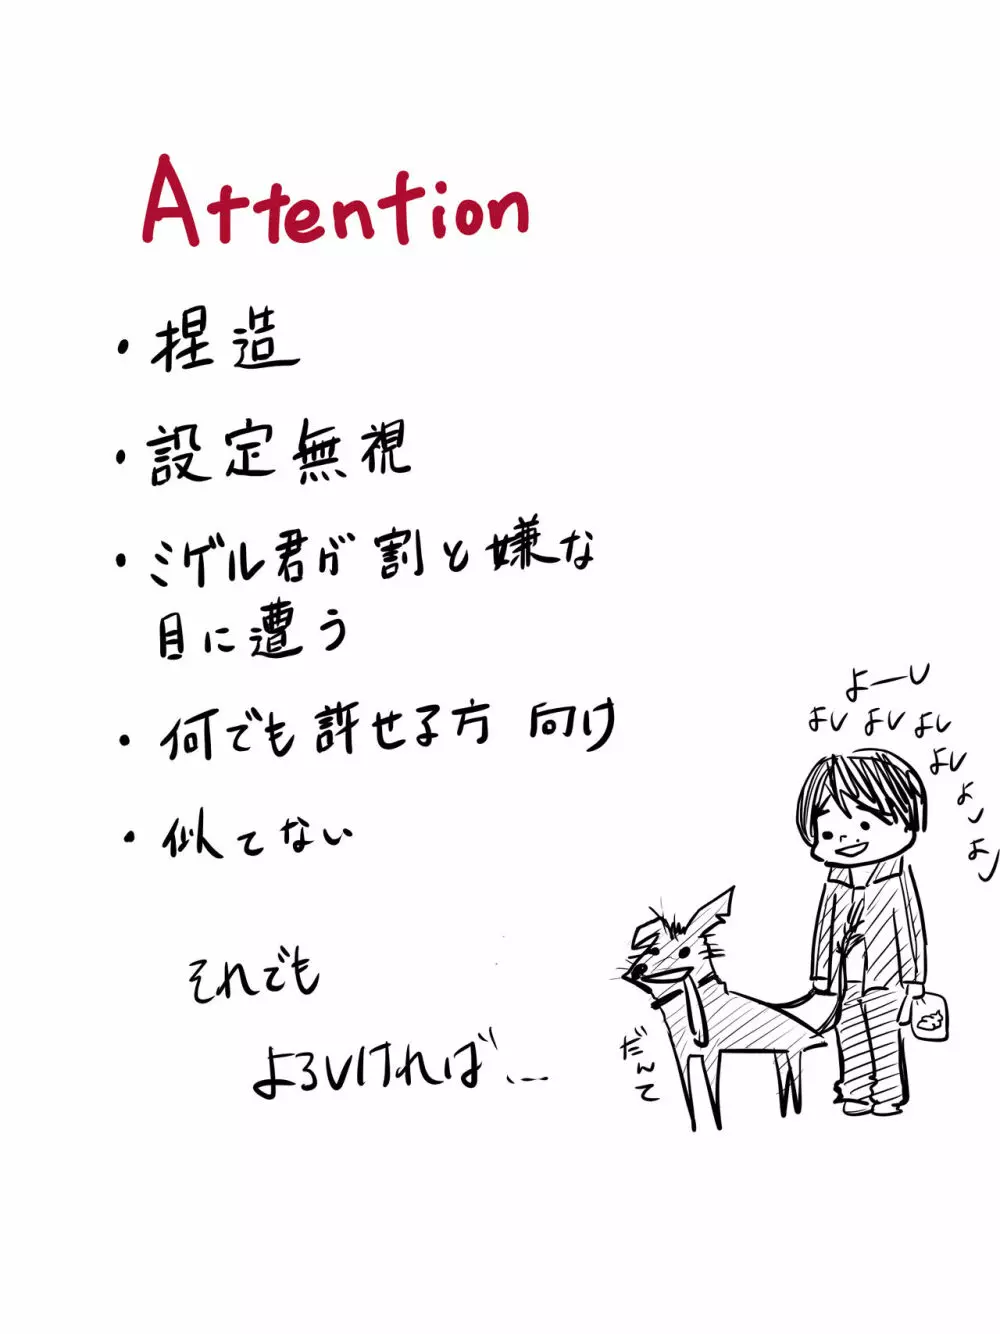 Attention
・捏造
・設定無視
・ミゲル君が割と嫌な
目に遭う
・何でも許せる方 向け
・似てない
それでも
よろしければ…
よーし
よし よし よし
よし
よし
よし
だんて